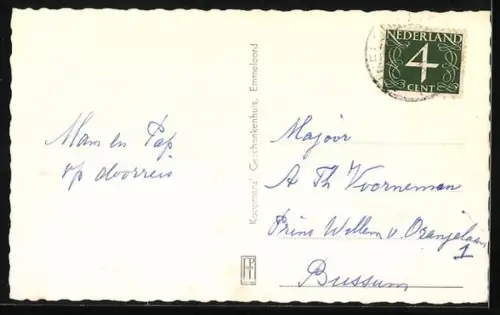 Mam en Pap
op doorreis
Koopmans' Geschenkenhuis, Emmeloord
NEDERLAND
4
CENT
Majoor
A Th Voorneman
Prins Willem v. Oranjelaan
1
Bussum